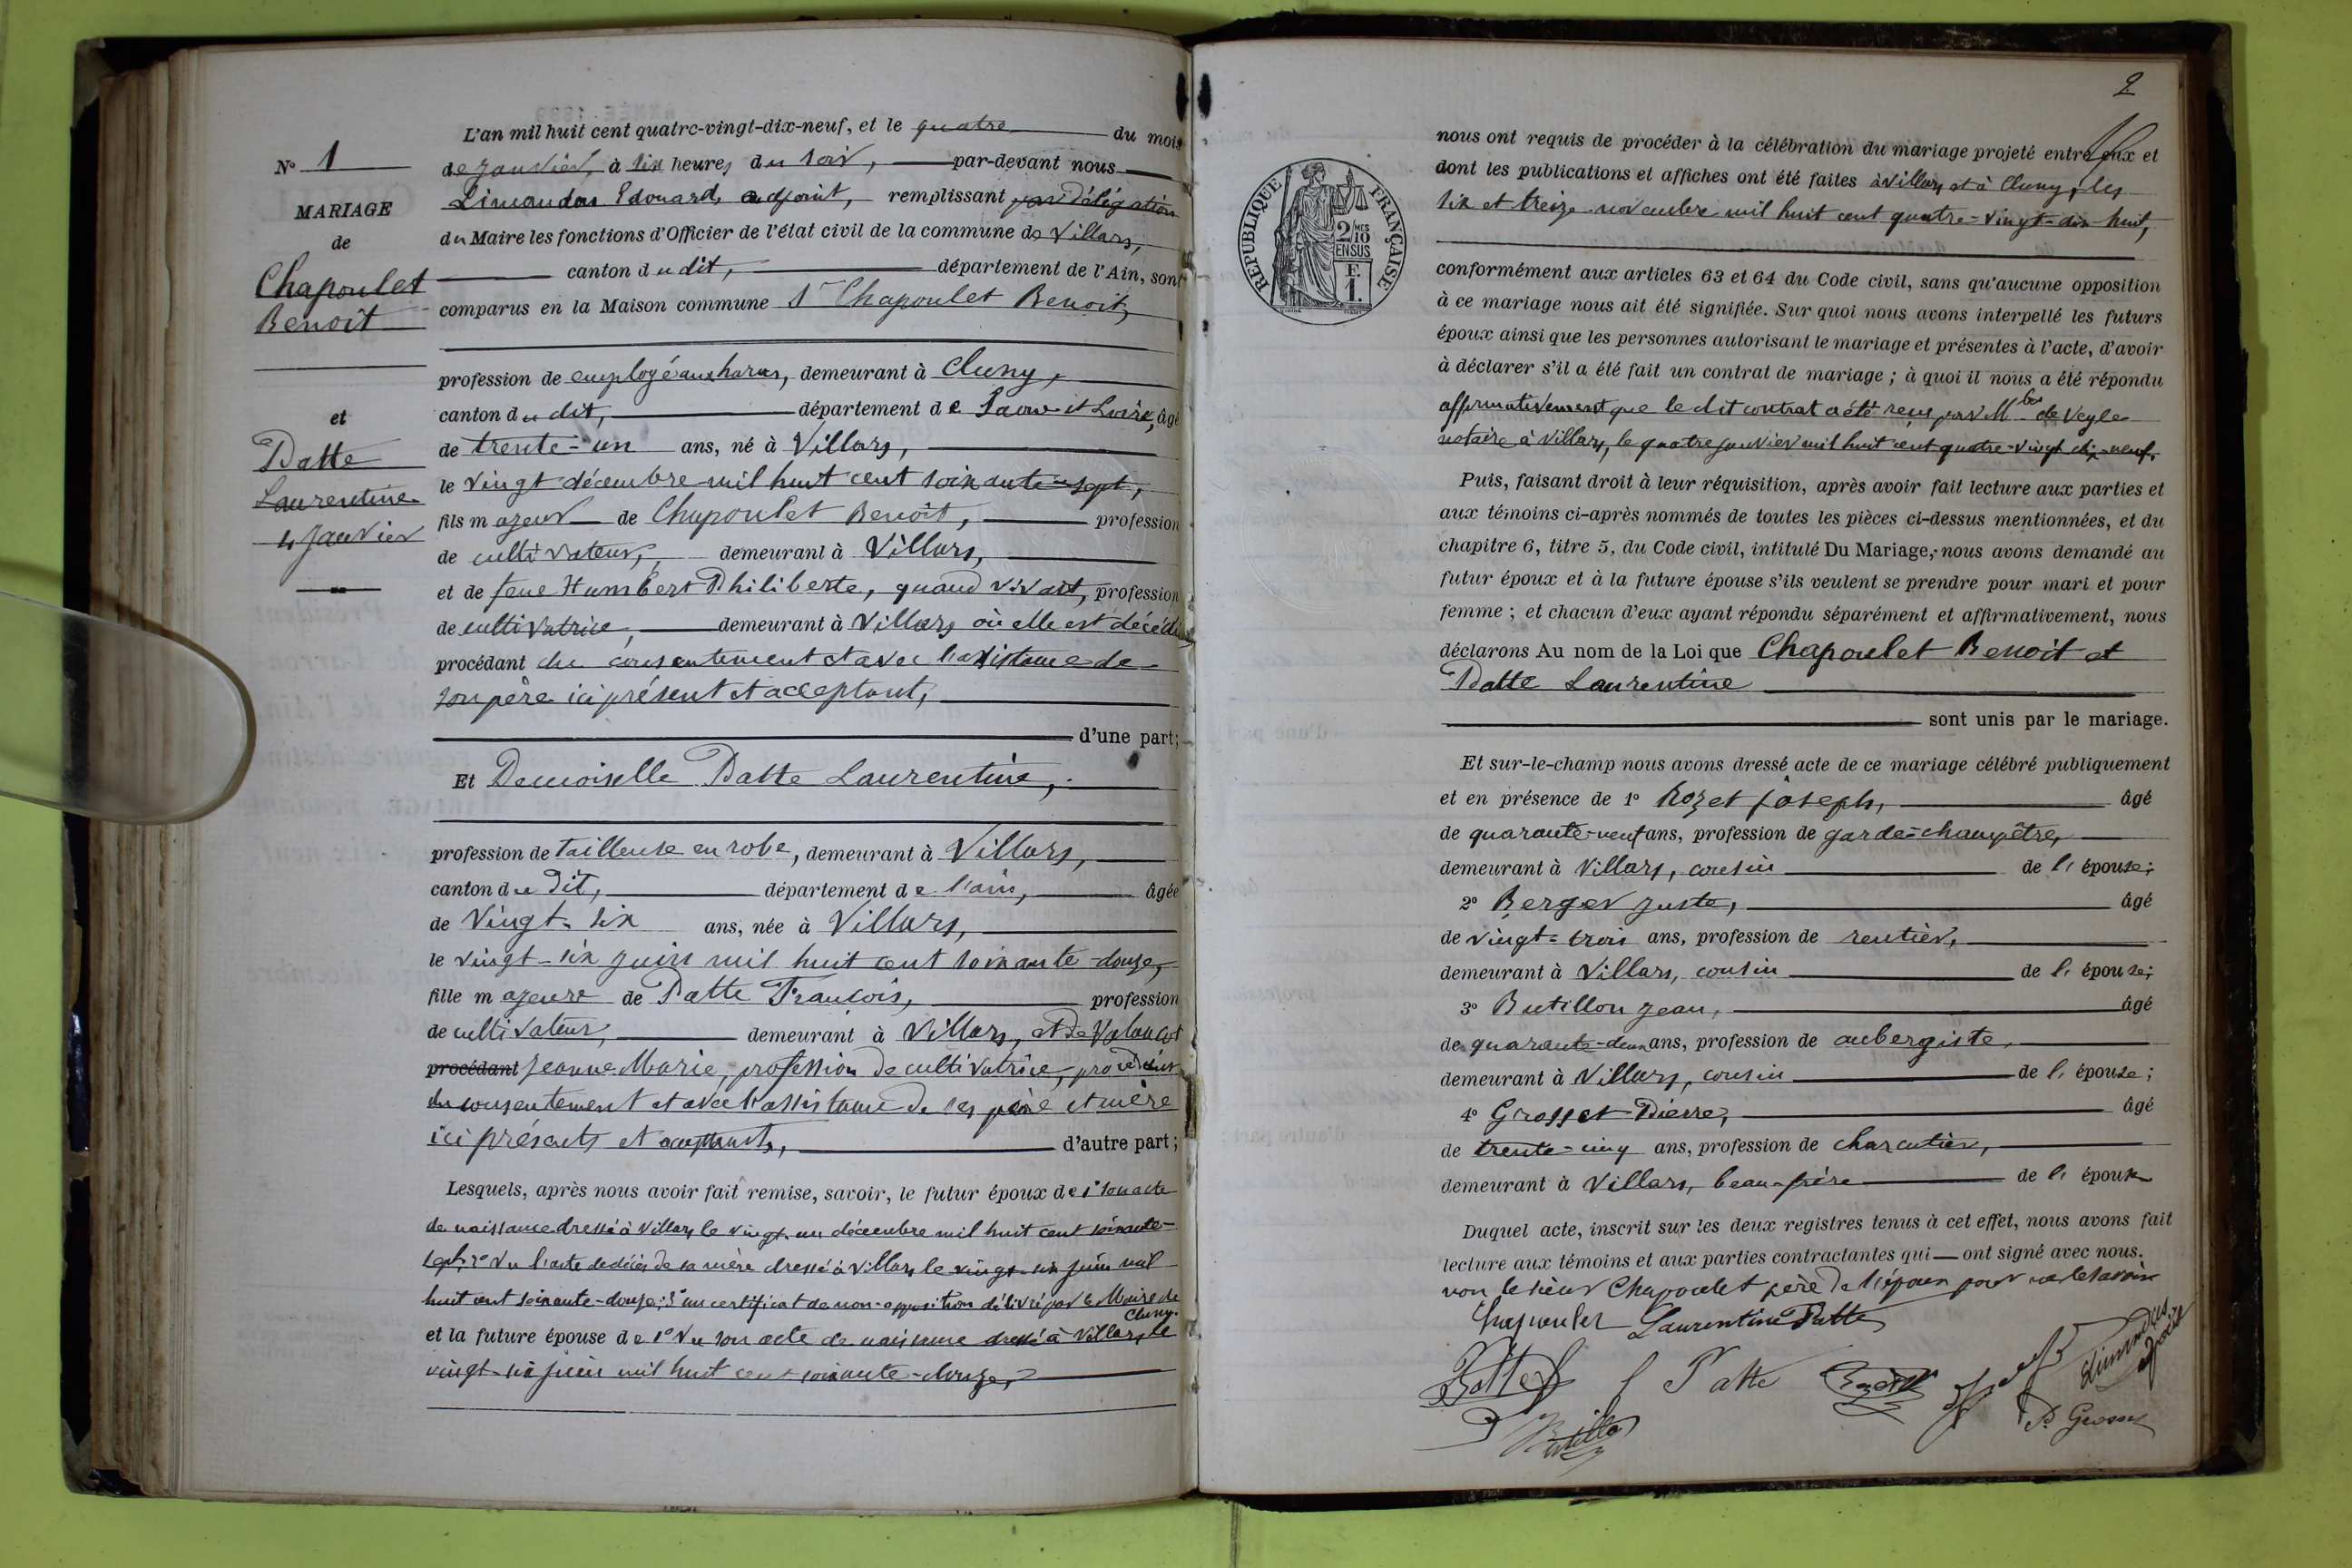 N° 1
MARIAGE
de
Chapoulet
Benoit
et
Patte
Laurentine
4 Janvier
L'an mil huit cent quatre-vingt-dix-neuf, et le quatre du mois
de janvier, à six heures du soir, par-devant nous
Limandas Edouard, adjoint, remplissant par délégation
du Maire les fonctions d'Officier de l'état civil de la commune de Villars,
canton dudit, département de l'Ain, sont
comparus en la Maison commune Sr Chapoulet Benoit,
profession de employé aux haras, demeurant à Cluny,
canton dudit, département de Saône et Loire, âgé
de trente-un ans, né à Villars,
le vingt décembre mil huit cent soixante-sept,
fils majeur de Chapoulet Benoit, profession
de cultivateur, demeurant à Villars,
et de feue Humbert Philiberte, quand vivait, profession
de cultivatrice, demeurant à Villars où elle est décédée
procédant du consentement et avec l'assistance de
son père ici présent et acceptant,
d'une part;
Et Demoiselle Patte Laurentine,
profession de tailleuse en robe, demeurant à Villars,
canton du dit, département de l'ain, âgée
de vingt-six ans, née à Villars,
le vingt-six juin mil huit cent soixante-douze,
fille majeure de Patte François, profession
de cultivateur, demeurant à Villars, et de Valançot
procédant Jeanne Marie, profession de cultivatrice, procédant
du consentement et avec l'assistance de ses père et mère
ici présents et acceptants, d'autre part;
Lesquels, après nous avoir fait remise, savoir, le futur époux de 1° son acte
de naissance dressé à Villars le vingt-un décembre mil huit cent soixante-
sept; 2° Vu l'acte de décès de sa mère dressé à Villars le vingt-six juin mil
huit cent soixante-douze; 3° un certificat de non-opposition délivré par le Maire de
Cluny.
et la future épouse de 1° Vu son acte de naissance dressé à Villars, le
vingt-six juin mil huit cent soixante-douze,
2
RÉPUBLIQUE FRANÇAISE
2 MES
10
EN SUS
F.
1.
nous ont requis de procéder à la célébration du mariage projeté entre eux et
dont les publications et affiches ont été faites à Villars et à Cluny, les
six et treize novembre mil huit cent quatre-vingt-dix-huit,
conformément aux articles 63 et 64 du Code civil, sans qu'aucune opposition
à ce mariage nous ait été signifiée. Sur quoi nous avons interpellé les futurs
époux ainsi que les personnes autorisant le mariage et présentes à l'acte, d'avoir
à déclarer s'il a été fait un contrat de mariage; à quoi il nous a été répondu
affirmativement que le dit contrat a été reçu par Mtre de Veyle
notaire à Villars, le quatre janvier mil huit cent quatre-vingt dix-neuf.
Puis, faisant droit à leur réquisition, après avoir fait lecture aux parties et
aux témoins ci-après nommés de toutes les pièces ci-dessus mentionnées, et du
chapitre 6, titre 5, du Code civil, intitulé Du Mariage, nous avons demandé au
futur époux et à la future épouse s'ils veulent se prendre pour mari et pour
femme; et chacun d'eux ayant répondu séparément et affirmativement, nous
déclarons Au nom de la Loi que Chapoulet Benoit et
Patte Laurentine
sont unis par le mariage.
Et sur-le-champ nous avons dressé acte de ce mariage célébré publiquement
et en présence de 1° Rozet Joseph, âgé
de quarante-neuf ans, profession de garde-champêtre,
demeurant à Villars, cousin de l'épouse;
2° Berger Juste, âgé
de vingt-trois ans, profession de rentier,
demeurant à Villars, cousin de l'épouse;
3° Butillon Jean, âgé
de quarante-deux ans, profession de aubergiste,
demeurant à Villars, cousin de l'épouse;
4° Grosset Pierre, âgé
de trente-cinq ans, profession de charcutier,
demeurant à Villars, beau-frère de l'épouse
Duquel acte, inscrit sur les deux registres tenus à cet effet, nous avons fait
lecture aux témoins et aux parties contractantes qui ont signé avec nous.
non le sieur Chapoulet père de l'époux pour ne le savoir
Chapoulet Laurentine Patte
Patte
Limandas
adjoint
P. Grosset
Butillon